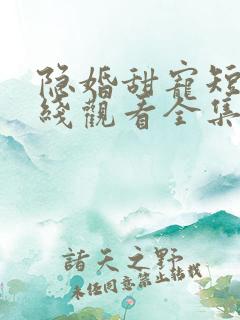 隐婚甜寵短
綫觀看全集
諸天之野
未任同意禁止转载